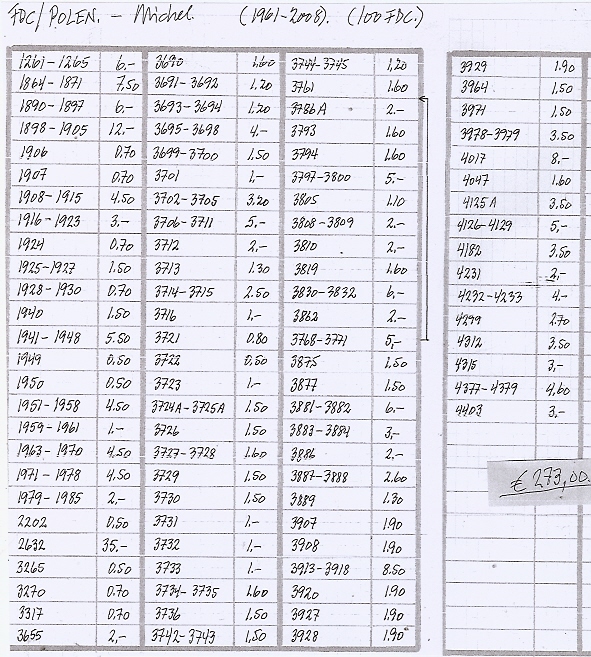 FDC/POLEN. - Michel. (1961-2008). (100 FDC.)
1261-1265 6,-
1864-1871 7,50
1890-1897 6,-
1898-1905 12,-
1906 0,70
1907 0,70
1908-1915 4,50
1916-1923 3,-
1924 0,70
1925-1927 1,50
1928-1930 0,70
1940 1,50
1941-1948 5,50
1949 0,50
1950 0,50
1951-1958 4,50
1959-1961 1,-
1963-1970 4,50
1971-1978 4,50
1979-1985 2,-
2202 0,50
2632 35,-
3265 0,50
3270 0,70
3317 0,70
3655 2,-
3690 1,60
3691-3692 1,20
3693-3694 1,20
3695-3698 4,-
3699-3700 1,50
3701 1,-
3702-3705 3,20
3706-3711 5,-
3712 2,-
3713 1,30
3714-3715 2,50
3716 1,-
3721 0,80
3722 0,50
3723 1,-
3724A-3725A 1,50
3726 1,50
3727-3728 1,60
3729 1,50
3730 1,50
3731 1,-
3732 1,-
3733 1,-
3734-3735 1,60
3736 1,50
3742-3743 1,50
3744-3745 1,20
3761 1,60
3786A 2,-
3793 1,60
3794 1,60
3797-3800 5,-
3805 1,10
3808-3809 2,-
3810 2,-
3819 1,60
3830-3832 6,-
3862 2,-
3768-3771 5,-
3875 1,50
3877 1,50
3881-3882 6,-
3883-3884 3,-
3886 2,-
3887-3888 2,60
3889 1,30
3907 1,90
3908 1,90
3913-3918 8,50
3920 1,90
3927 1,90
3928 1,90
3929 1,90
3964 1,50
3971 1,50
3978-3979 3,50
4017 8,-
4047 1,60
4125A 3,50
4126-4129 5,-
4182 3,50
4231 2,-
4232-4233 4,-
4299 2,70
4312 3,50
4315 3,-
4377-4379 4,60
4403 3,-
€ 273,00.